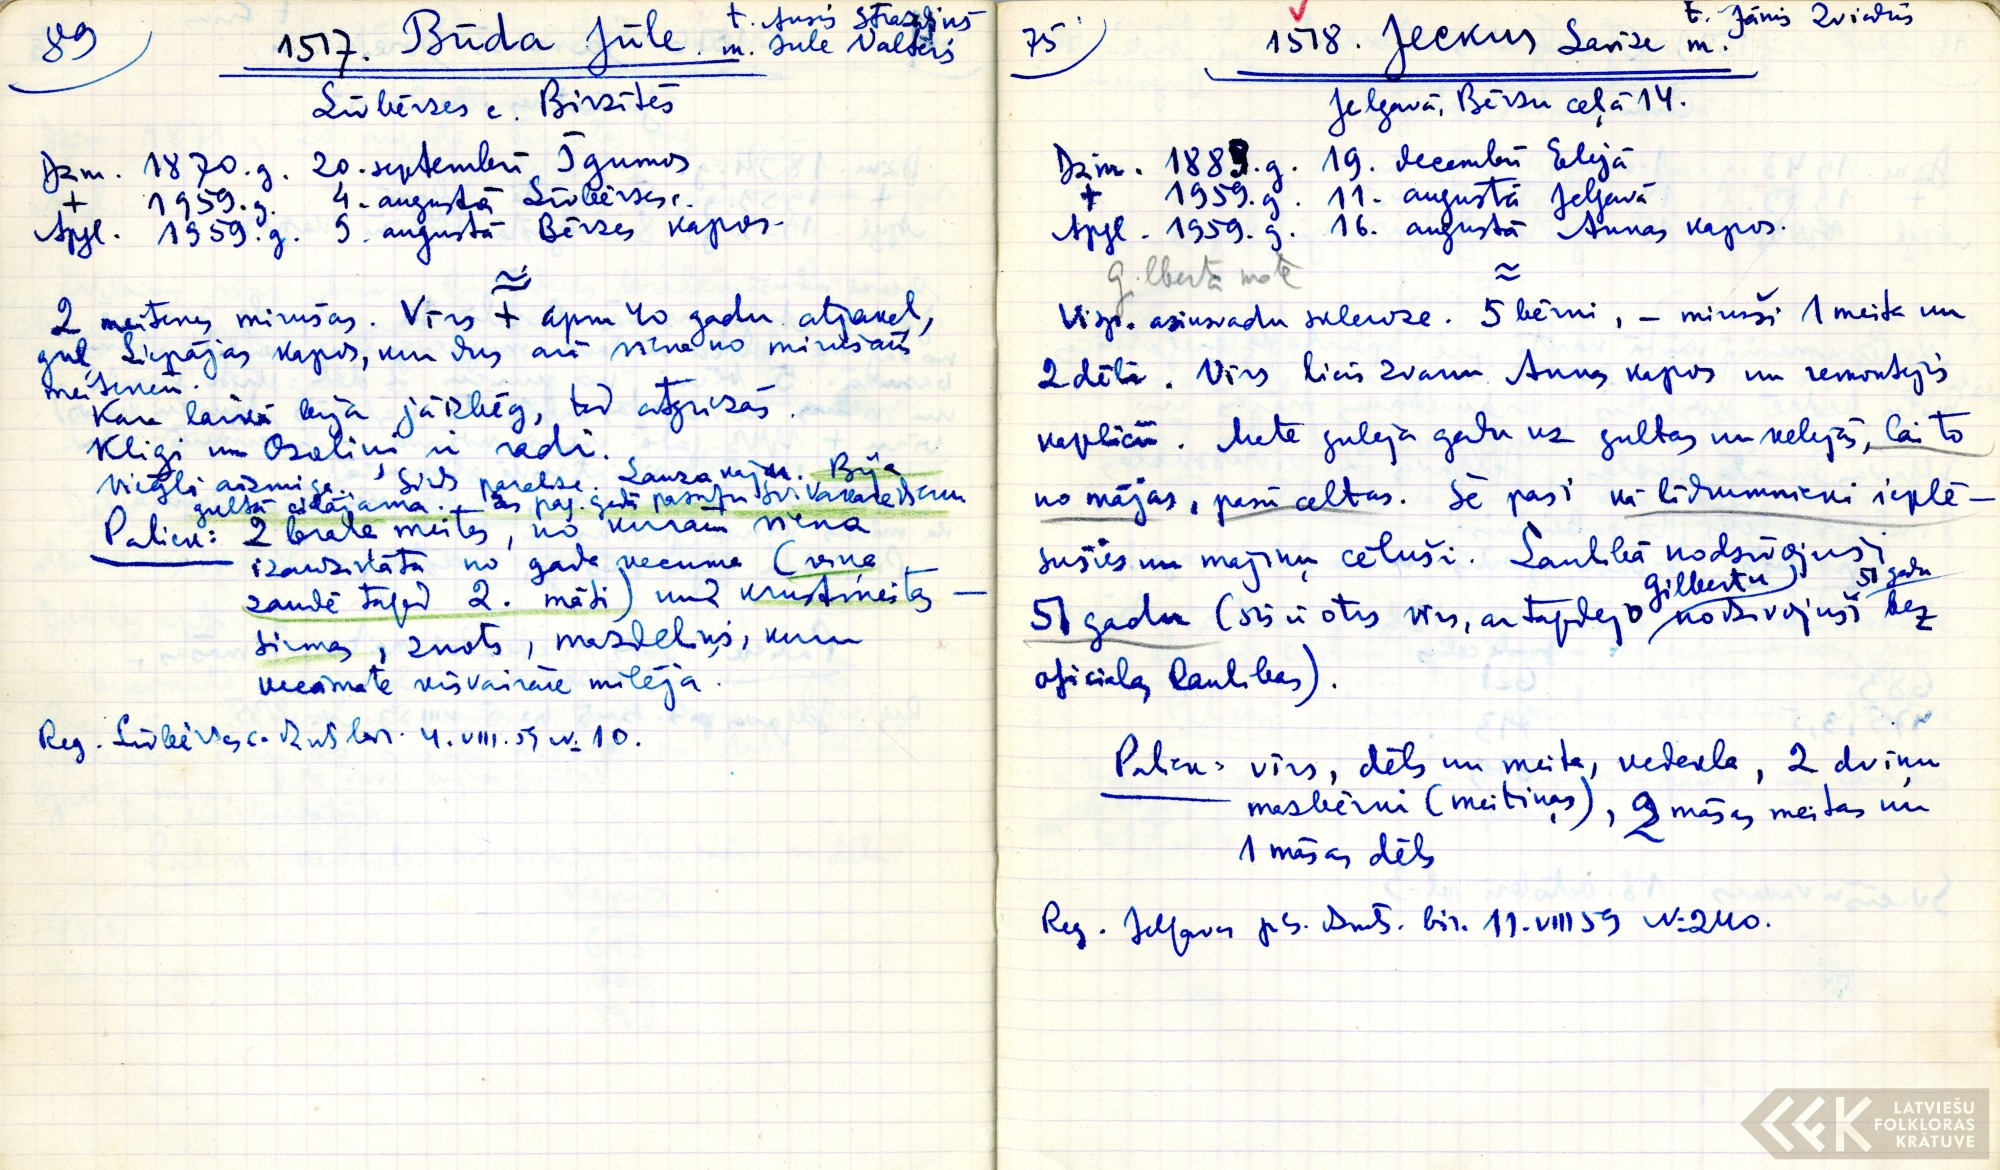 89
1517. Būda Jūle. t. Ansis Strazdiņš
m. Jule Valters
Līvbērzes c. Birzītēs
Dzm. 1870.g. 20. septembrī Īgumos
+ 1959.g. 4. augustā Līvbērzes c.
Apgl. 1959.g. 9. augustā Bērzes kapos.
≈
2 meitenes mirušas. Vīrs + apm 40 gadu atpakaļ,
guļ Liepājas kapos, kur dus arī viena no mirušām
meitenēm.
Kara laikā bija jāizbēg, tad atgriezās.
Kligi un Ozoliņi ir radi.
Viegli aizmiga. Sirds paralīze. Lauza kāju. Bija
gultā cilājama.
Paliek: 2 brāļa meitas, no kurām viena
izaudzināta no gada vecuma (viņa
zaudē tagad 2. māti) un 2 krustmeitas —
sirmas, znots, mazdēliņš, kuru
vecāmāte visvairāk mīlēja.
Reg. Līvbērzes c. Dzīvs. bir. 4.VIII.59 № 10.
75
1518. Jeckus Lavīze t. Jānis Zviedris
m.
Jelgavā, Bērzu ceļā 14.
Dzim. 1889.g. 19. decembrī Elejā
+ 1959.g. 11. augustā Jelgavā
Apgl. 1959.g. 16. augustā Annas kapos.
≈
Gilberta māte
Visp. asinsvadu skleroze. 5 bērni, – miruši 1 meita un
2 dēli. Vīrs licis zvanu Annas kapos un remontējis
kapliču. Māte gulēja gadu uz gultas un vēlējās, lai to
no mājas, pašu celtas. Še paši kā līdumnieki ieplē–
sušies un mājiņu cēluši. Laulībā nodzīvojuši
51 gadu (šis ir otrs vīrs, ar tagadējo Gilbertu nodzīvojuši 51 gadu bez
oficiālas laulības).
Paliek: vīrs, dēls un meita, vedekla, 2 dvīņu
mazbērni (meitiņas), 2 māsas meitas un
1 māsas dēls
Reg. Jelgavas pls. Dzimts. bir. 11.VIII 59 № 240.
LATVIEŠU
FOLKLORAS
KRĀTUVE